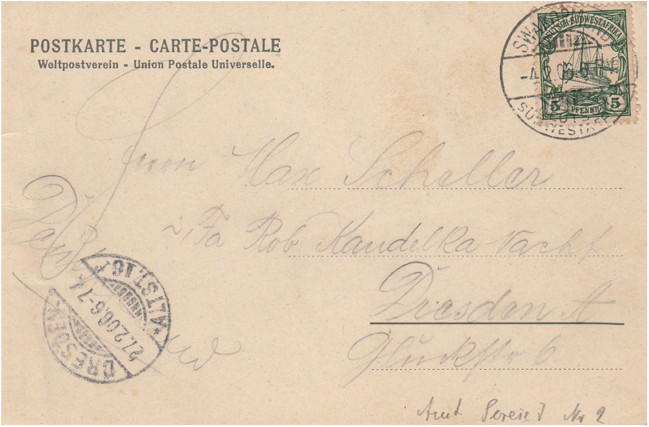 POSTKARTE - CARTE-POSTALE
Weltpostverein - Union Postale Universelle.
SWAKOPMUND
DEUTSCH-SÜDWESTAFRIKA
5 PFENNIG 5
Herrn Max Scheller
i/Fa Rob Kaudelka Nachf
Dresden A
Glückstr 6
DRESDEN
ALTST. 16
27.2.06.6-7
Nr 2